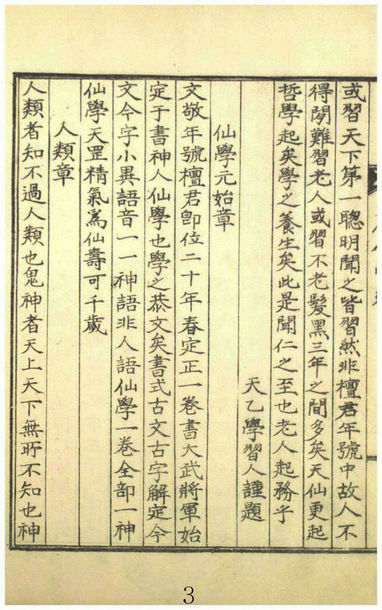 或習天下第一聰明聞之皆習然非檀君年號中故人不
得閱難習老人或習不老髮黑三年之間多矣天仙更起
哲學起矣學之養生矣此是聞仁之至也老人起務乎
天乙學習人謹題
仙學元始章
文敬年號檀君卽位二十年春定正一卷書大武將軍始
定于書神人仙學也學之恭文矣書式古文古字解定今
文今字小異語音一一神語非人語仙學一卷全部一神
仙學天罡精氣爲仙壽可千歲
人類章
人類者知不過人類也鬼神者天上天下無所不知也神
3